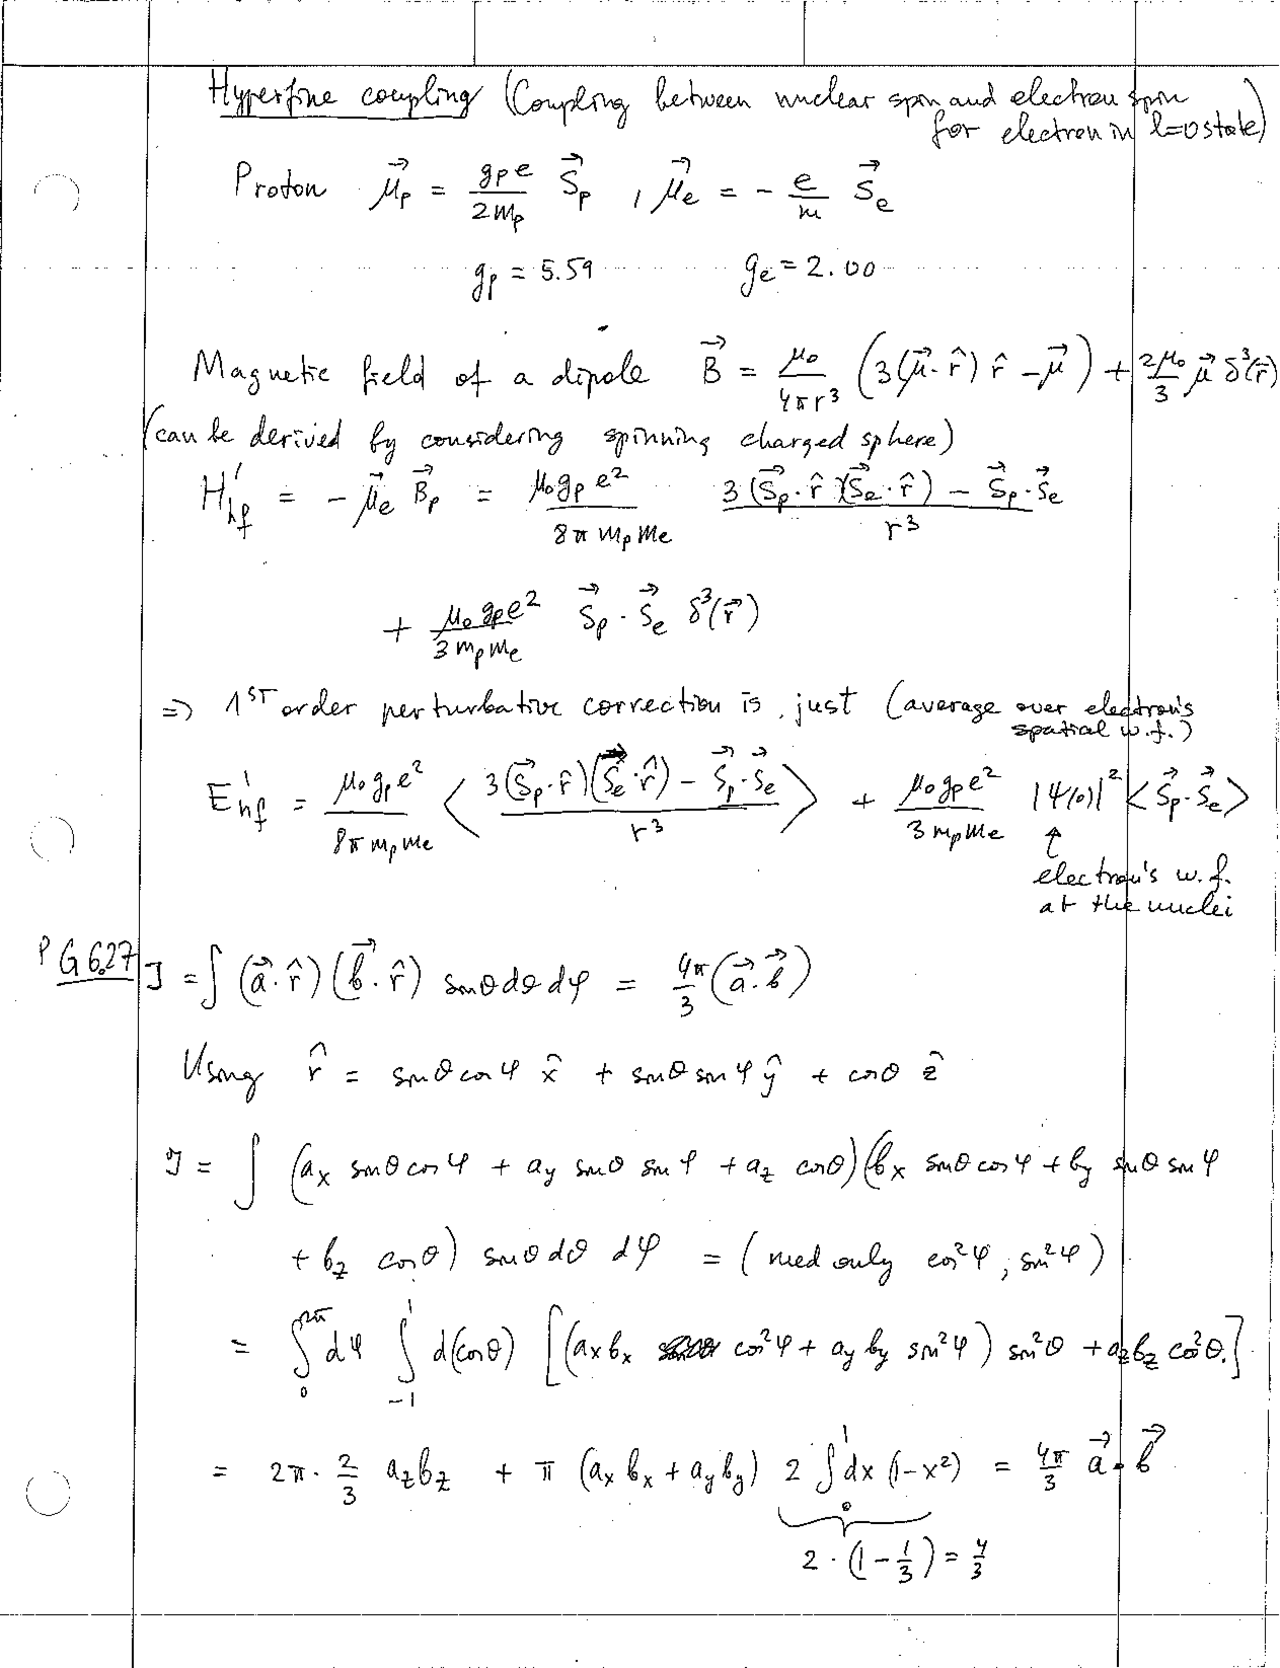 Hyperfine coupling (Coupling between nuclear spin and electron spin
for electron in l=0 state)
Proton μ⃗_p = g_p e / 2m_p S⃗_p , μ⃗_e = - e/m S⃗_e
g_p = 5.59 g_e = 2.00
Magnetic field of a dipole B⃗ = μ₀/4πr³ (3(μ⃗·r̂) r̂ - μ⃗) + 2μ₀/3 μ⃗ δ³(r⃗)
(can be derived by considering spinning charged sphere)
H'_hf = - μ⃗_e B⃗_p = μ₀ g_p e² / 8π m_p m_e (3(S⃗_p·r̂)(S⃗_e·r̂) - S⃗_p·S⃗_e) / r³
+ μ₀ g_p e² / 3 m_p m_e S⃗_p · S⃗_e δ³(r⃗)
⇒ 1ST order perturbative correction is just (average over electron's
spatial w.f.)
E'_hf = μ₀ g_p e² / 8π m_p m_e ⟨ (3(S⃗_p·r̂)(S⃗_e·r̂) - S⃗_p·S⃗_e) / r³ ⟩ + μ₀ g_p e² / 3 m_p m_e |ψ(0)|² ⟨S⃗_p·S⃗_e⟩
↑
electron's w.f.
at the nuclei
P G 6.27 I = ∫ (a⃗·r̂)(b⃗·r̂) sinθ dθ dφ = 4π/3 (a⃗·b⃗)
Using r̂ = sinθ cosφ x̂ + sinθ sinφ ŷ + cosθ ẑ
I = ∫ (a_x sinθ cosφ + a_y sinθ sinφ + a_z cosθ)(b_x sinθ cosφ + b_y sinθ sinφ
+ b_z cosθ) sinθ dθ dφ = (need only cos²φ, sin²φ)
= ∫₀^2π dφ ∫₋₁^1 d(cosθ) [(a_x b_x cos²φ + a_y b_y sin²φ) sin²θ + a_z b_z cos²θ.]
= 2π · 2/3 a_z b_z + π (a_x b_x + a_y b_y) 2 ∫₀^1 dx (1-x²) = 4π/3 a⃗·b⃗
2 · (1 - 1/3) = 4/3